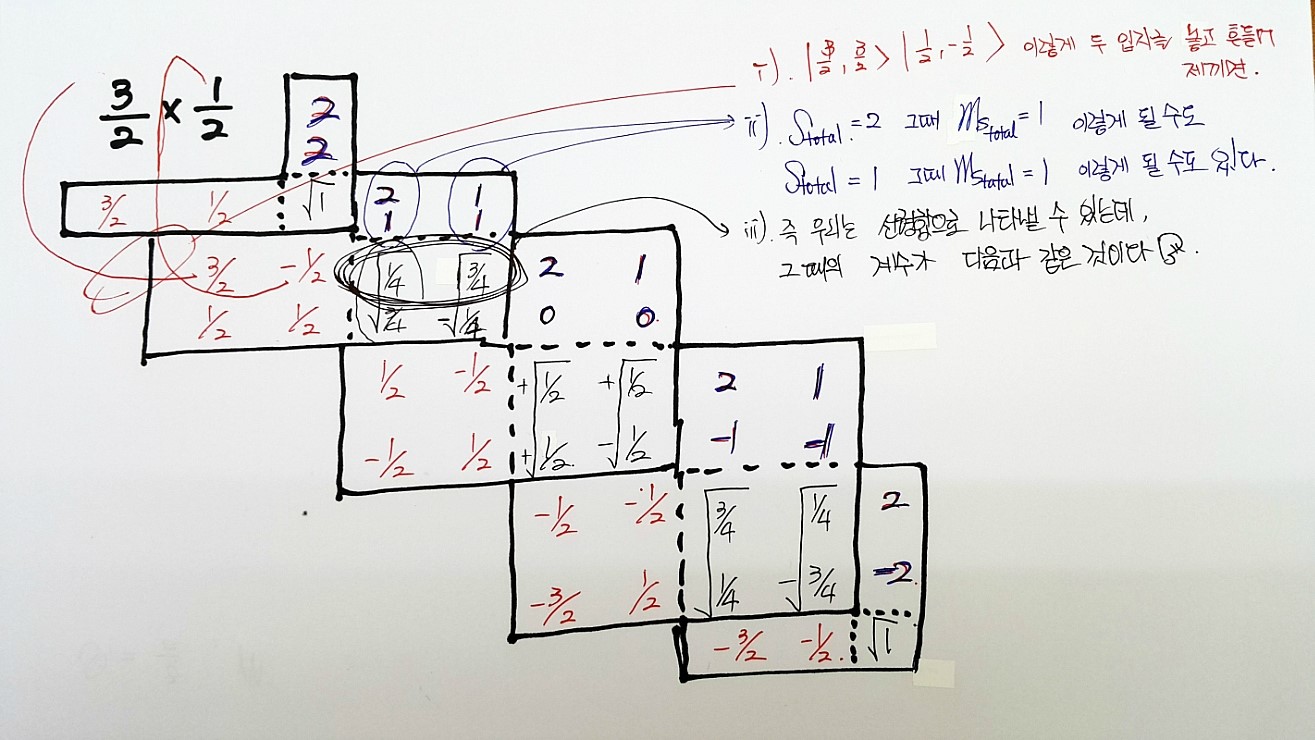 3/2 × 1/2
2
2
3/2 1/2 √1 2 1
1 1
3/2 -1/2 √1/4 √3/4 2 1
1/2 1/2 -√1/4 0 0
1/2 -1/2 +√1/2 +√1/2 2 1
-1/2 1/2 +√1/2 -√1/2 -1 -1
-1/2 -1/2 √3/4 √1/4 2
-3/2 1/2 √1/4 -√3/4 -2
-3/2 -1/2 √1
i). |3/2, 3/2 > |1/2, -1/2 > 이렇게 두 입자를 놓고
제끼면.
ii). Stotal = 2 그때 mstotal = 1 이렇게 될 수도
Stotal = 1 그때 mstotal = 1 이렇게 될 수도 있다.
iii). 즉 우리는 선형합으로 나타낼 수 있는데,
그때의 계수가 다음과 같은 것이다